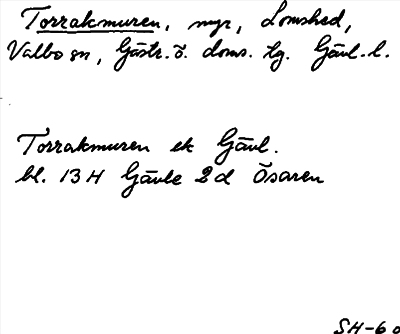 Torrakmuren, myr, Lomshed,
Valbo sn, Gästr. ö. doms. tg. Gävl. l.
Torrakmuren ek Gävl.
bl. 13 H Gävle 2 d Ösaren
SH-6 o